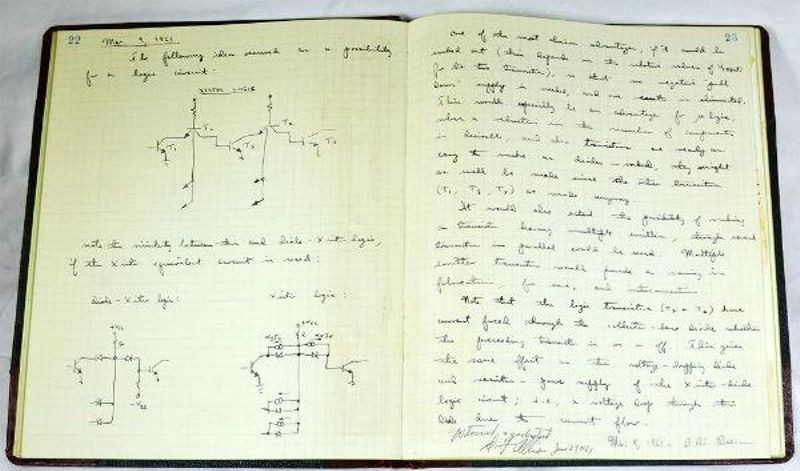 22
Mar. 9, 1961.
The following idea seemed as a possibility
for a logic circuit:
XISTOR LOGIC
T1 T2 T3 T4
note the similarity between this and diode-Xistor logic,
if the Xistor equivalent circuit is used:
diode-Xistor logic: Xistor logic:
23
One of the most obvious advantages, if it could be
worked out (this depends on the relative values of
for the two transistors), is that no negative pull
down supply is needed, and one is eliminated.
This would especially be an advantage for μ logic,
where a reduction in the number of components
is desirable, and since transistors are nearly as
easy to make as diodes, they might
as well be made since the other transistors
(T1, T3, ) are made anyway.
It would also extend the possibility of making
a transistor having multiple emitters, though several
transistors in parallel could be used. Multiple
emitter transistors would provide a saving in
fabrication, for one, and interconnection.
Note that the logic transistors (T2 + T4) have
current forced through the collector-base diode whether
the preceding transistor is on or off. This gives
the same effect as the voltage-dropping diode
and resistor- supply of the Xistor-diode
logic circuit; i.e., a voltage drop through this
diode due to current flow.
Witnessed & understood
Mar. 9, 1961